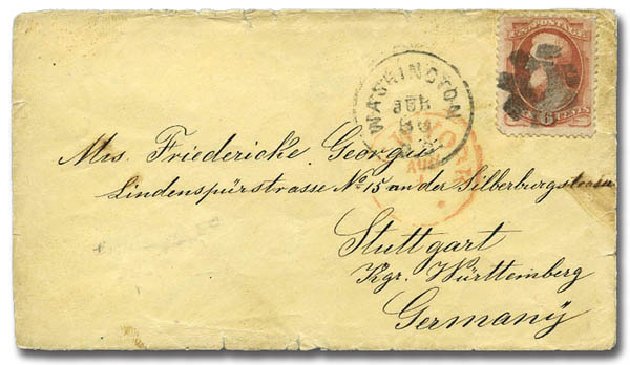 U.S. POSTAGE
6 CENTS
WASHINGTON
Mrs. Friedericke Georgii
Lindenspürstrasse No 15 an der Silberburgstrasse
Stuttgart
Kgr. Württemberg
Germany